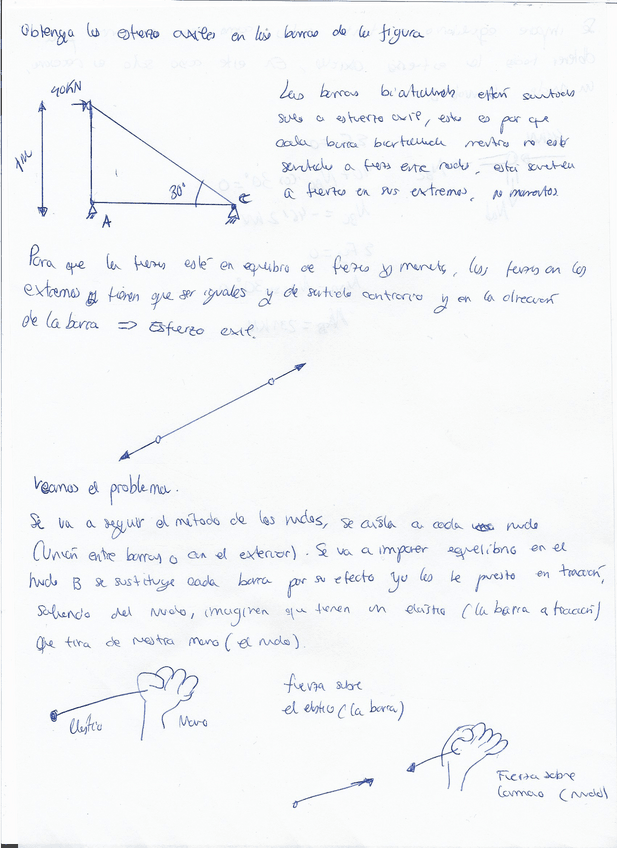 Obtenga los esfuerzos axiles en las barras de la figura
40KN
1m
30°
A
C
Las barras biarticuladas están sometidas
a esfuerzo axil, esto es por que
cada barra biarticulada mientras no esté
sometida a fuerzas entre nudos, está sometida
a fuerzas en sus extremos, no momentos
Para que la fuerzas esté en equilibrio de fuerzas y momentos, las fuerzas en los
extremos tienen que ser iguales y de sentido contrario y en la dirección
de la barra => Esfuerzo axil.
Veamos el problema.
Se va a seguir el método de los nudos, se aísla a cada nudo
(Unión entre barras o con el exterior). Se va a imponer equilibrio en el
nudo B se sustituye cada barra por su efecto yo los he puesto en tracción,
saliendo del nudo, imaginen que tienen un elástico (la barra a tracción)
que tira de nuestra mano (el nudo).
Elástico
Mano
fuerza sobre
el elástico (la barra)
Fuerza sobre
la mano (nudo)